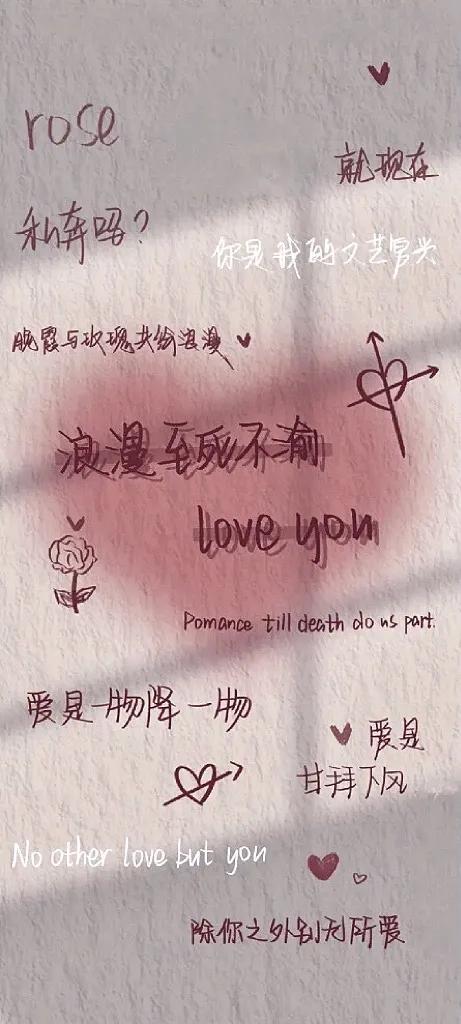 rose
就现在
私奔吗?
你是我的文艺冒尖
晚霞与玫瑰共纷浪漫
浪漫至死不渝
love you
Pomance till death do us part.
爱是一物降一物
爱是
甘拜下风
No other love but you
除你之外别无所爱